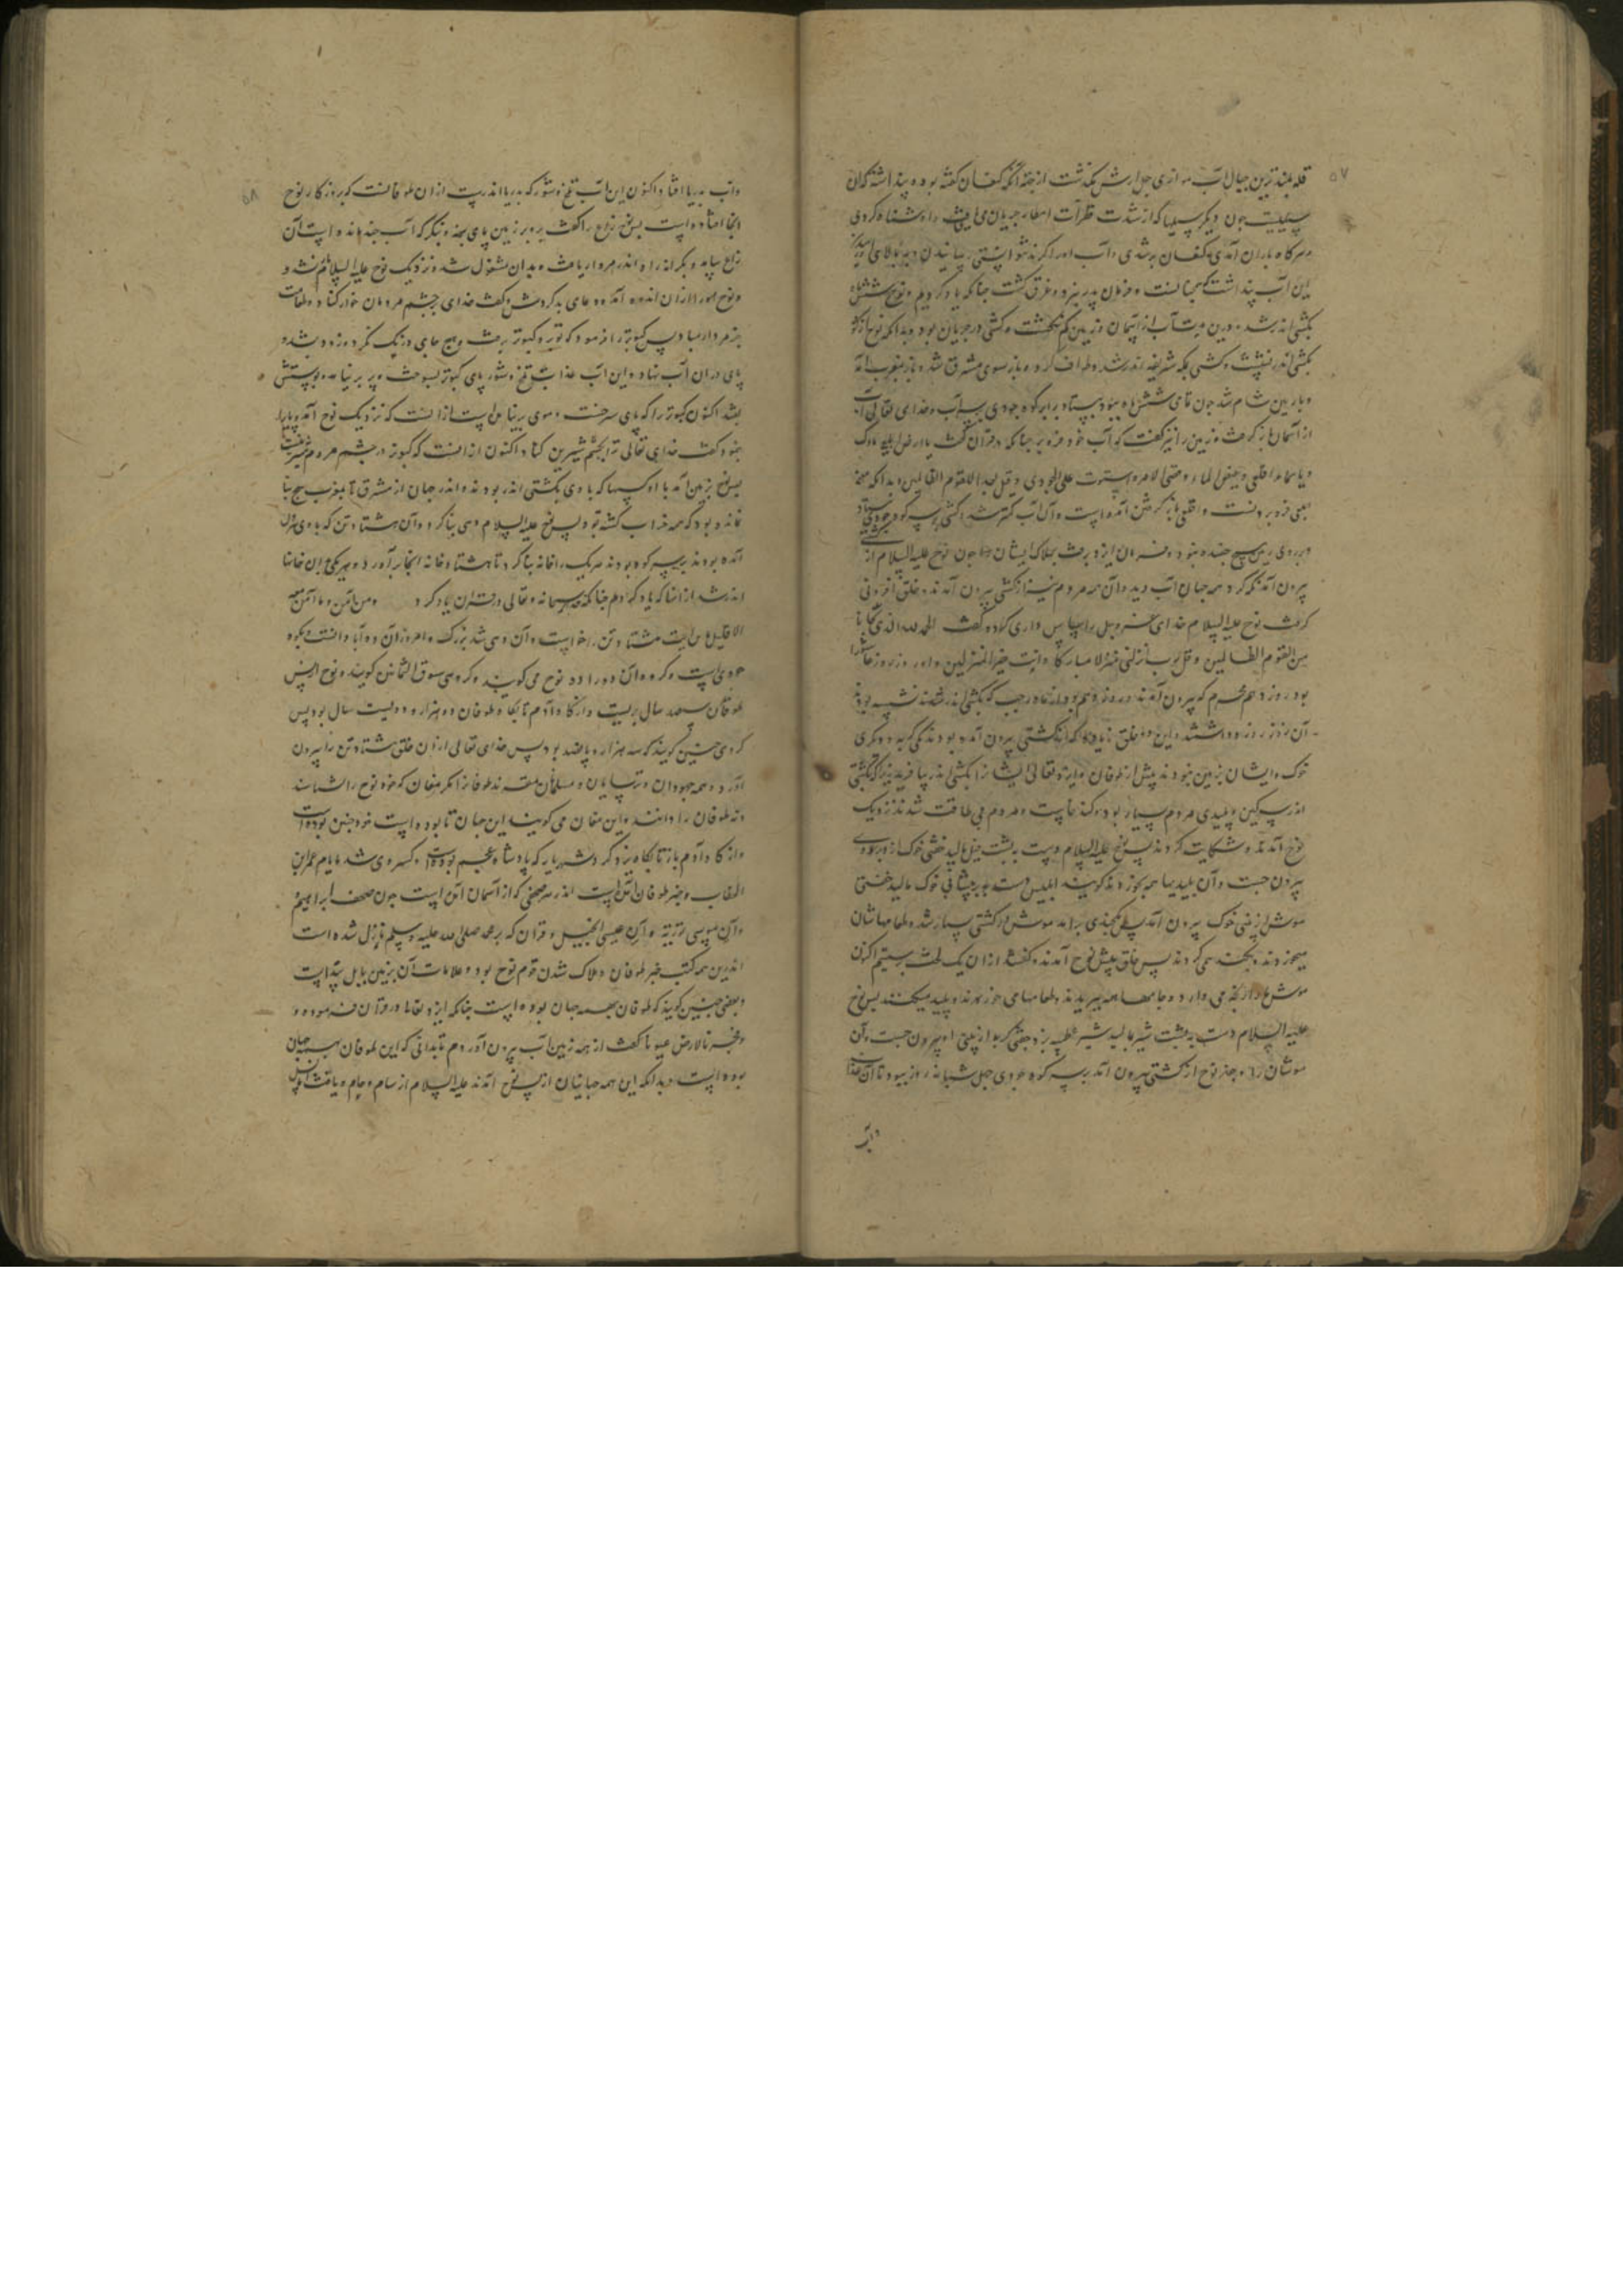 ۵۷
قله بلندترین جبال آب موازی چهل ارش بگذشت از جهة آنکه کنعان گفته بود و پنداشته که آن
سیلیست چون دیگر سیلها که از شدت قطرات امطار جریان می‌یافت و او شناه کردی
و هرگاه باران آمدی کنعان بر شدی و آب او را گزند نتوانستی رسانیدن
این آب پنداشت که همچنانست و فرمان پدر نبرد و غرق گشت چنانکه یاد کردیم و نوح شش ماه
بکشتی اندر شد و درین مدت آب از آسمان و زمین کم نگشت و کشتی در جریان بود و بدانکه نوح از کوفه
بکشتی اندر نشست و کشتی بمکه شریفه اندر شد و طواف کرد و باز سوی مشرق شد و باز بمغرب آمد
و باز بزمین شام شد چون تمامی شش ماه ببود بیستاد برابر کوه جودی بر سر آب و خدای تعالی آب
از آسمان باز گرفت و زمین را نیز گفت که آب خود فرو بر چنانکه در قرآن گفت یا ارض ابلعی ماءک
و یا سماء اقلعی و غیض الماء و قضی الامر و استوت علی الجودی و قیل بعدا للقوم الظالمین و بدانکه معنی
ابلعی فرو بردنست و اقلعی باز گرفتن آمده است و آن آب کمتر شد و کشتی بر سر کوه جودی بیستاد
و بر روی زمین هیچ جنبنده نبود و فرمان ایزد برفت بهلاک ایشان چون نوح علیه السلام از کشتی
بیرون آمد نگه کرد همه جهان آب دید و آن همه مردم نیز از کشتی بیرون آمدند و خلق افزونی
گرفت نوح علیه السلام خدای عز و جل را سپاس داری کرد و گفت الحمد لله الذی نجانا
من القوم الظالمین و قل رب انزلنی منزلا مبارکا و انت خیر المنزلین و آن روز روز عاشورا
بود روز دهم محرم که بیرون آمدند و روز دهم بود از ماه رجب که بکشتی اندر نشسته بودند
آن روز روزه داشتند و این دو خلق زیاده که از کشتی بیرون آمده بودند یکی گربه و دیگری
خوک و ایشان بزمین نبودند پیش از طوفان و ایزد تعالی ایشانرا بکشتی اندر بیافرید زیرا که بکشتی
اندر سرگین و پلیدی مردم بسیار بود و گنده خاست و مردم بی طاقت شدند نزدیک
نوح آمدند و شکایت کردند پس نوح علیه السلام دست به پشت پیل مالید خفتی خوک از وی
بیرون جست و آن پلیدیها همه بخورد و گویند ابلیس دست بر پیشانی خوک مالید خفتی
موش از بینی خوک بیرون آمد پس چندی برآمد موش اندر کشتی بسیار شد و طعامهاشان
میخوردند و گنده همی کردند پس خلق پیش نوح آمدند و گفتند از آن یک آفت برستیم اکنون
موش ما را رنجه می دارد و جامها همه ببریدند و طعامها می خورند و پلید میکنند پس نوح
علیه السلام دست به پشت شیر مالید شیر عطسه بزد خفتی گربه از بینی او بیرون جست و آن
موشان را بخورد و چون نوح از کشتی بیرون آمد بر سر کوه جودی چهل شبانه روز ببود تا آن همه
و آب
۵۸
و آب بدریا افتاد اکنون این آب تلخ و شور که بدریا اندرست از آن طوفانست که بروزگار نوح
آنجا افتاده است پس نوح زاغ را گفت برو بر زمین پای بنه و بنگر که آب چند مانده است آن
زاغ بیامد و بکرانه راه اندر مردار یافت و بدان مشغول شد و نزدیک نوح علیه السلام نشد
و نوح مر او را از آن اندوه آمد و دعای بد کردش و گفت خدای بچشم مردمان خوار کناد و طعامت
جز مردار مباد پس کبوتر را فرمود که تو رو کبوتر برفت و هیچ جای درنگ نکرد و زود بشد و
پای در آن آب نهاد و این آب عذاب تلخ و شور پای کبوتر بسوخت و پر بر نیامد و پوستش
بشد اکنون کبوتر را که پای سرخست و موی بر پای نیست از آنست که نزدیک نوح آمد و پایرا
بنمود گفت خدای تعالی ترا بچشم شیرین کناد اکنون از آنست که کبوتر در چشم مردم شیرینست
پس نوح بزمین آمد با آن کسها که با وی بکشتی اندر بودند و اندر جهان از مشرق تا بمغرب هیچ بنا
نمانده بود که همه خراب گشته بود پس نوح علیه السلام دهی بنا کرد و آن هشتاد تن که با وی فرود
آمده بودند بر سر کوه بودند هر یک را خانه بنا کرد تا هشتاد خانه آنجا برآورد و هر یکی بدان خانها
اندر شد از آنها که یاد کردم چنانکه سبحانه و تعالی در قرآن یاد کرد و من آمن و ما آمن معه
الا قلیل این هشتاد تن را خواست و آن دهی شد بزرگ و امروز آن ده آبادانست و بکوه
جودی است و گروهی آن ده را ده نوح می گویند و گروهی سوق الثمانین گویند و نوح از پس
طوفان سیصد سال بزیست و از گاه آدم تا بگاه طوفان دو هزار و دویست سال بود پس
گروهی چنین گویند که سه هزار و پانصد بود پس خدای تعالی از آن خلق هشتاد تن را بیرون
آورد و همه جهودان و ترسایان و مسلمانان مقرند طوفانرا مگر مغان که خود نوح را نشناسند
و نه طوفان را دانند و این مغان می گویند این جهان تا بوده است خود چنین بوده است
و از گاه آدم باز تا بگاه یزدگرد شهریار که پادشاه عجم بوده است و کسری شد بایام عمر ابن
الخطاب و خبر طوفان آمده است اندر هر صحفی که از آسمان آمده است چون صحف ابراهیم
و آن موسی توریة و آن عیسی انجیل و قرآن که بر محمد صلی الله علیه و سلم نازل شده است
اندرین همه کتب خبر طوفان و هلاک شدن قوم نوح بود و علامات آن بزمین بابل پیداست
و بعضی چنین گویند که طوفان بهمه جهان بوده است چنانکه ایزد تعالی در قرآن فرموده
و فجرنا الارض عیونا گفت از همه زمین آب بیرون آوردم تا بدانی که این طوفان بهمه جهان
بوده است و بدانکه این همه جهانیان از پس نوح آمدند علیه السلام از سام و حام و یافث